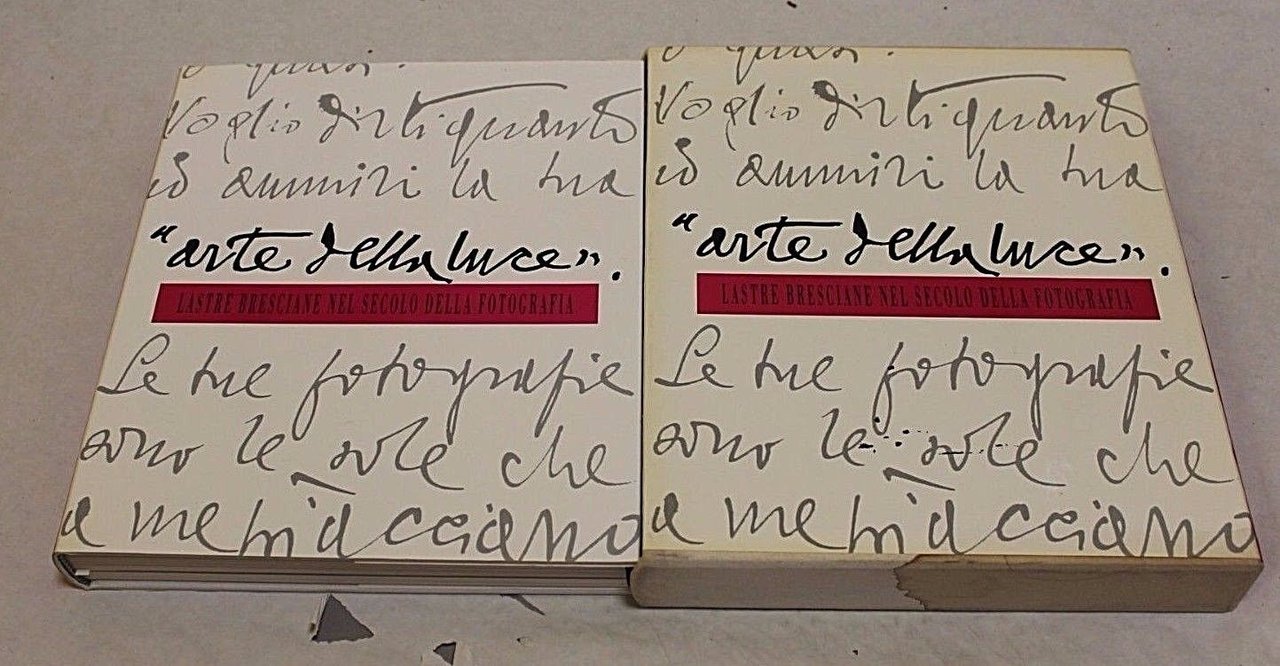 o quasi.
Voglio dirti quanto
io ammiri la tua
"arte della luce".
LASTRE BRESCIANE NEL SECOLO DELLA FOTOGRAFIA
Le tue fotografie
sono le sole che
a me piacciano
o quasi.
Voglio dirti quanto
io ammiri la tua
"arte della luce".
LASTRE BRESCIANE NEL SECOLO DELLA FOTOGRAFIA
Le tue fotografie
sono le sole che
a me piacciano